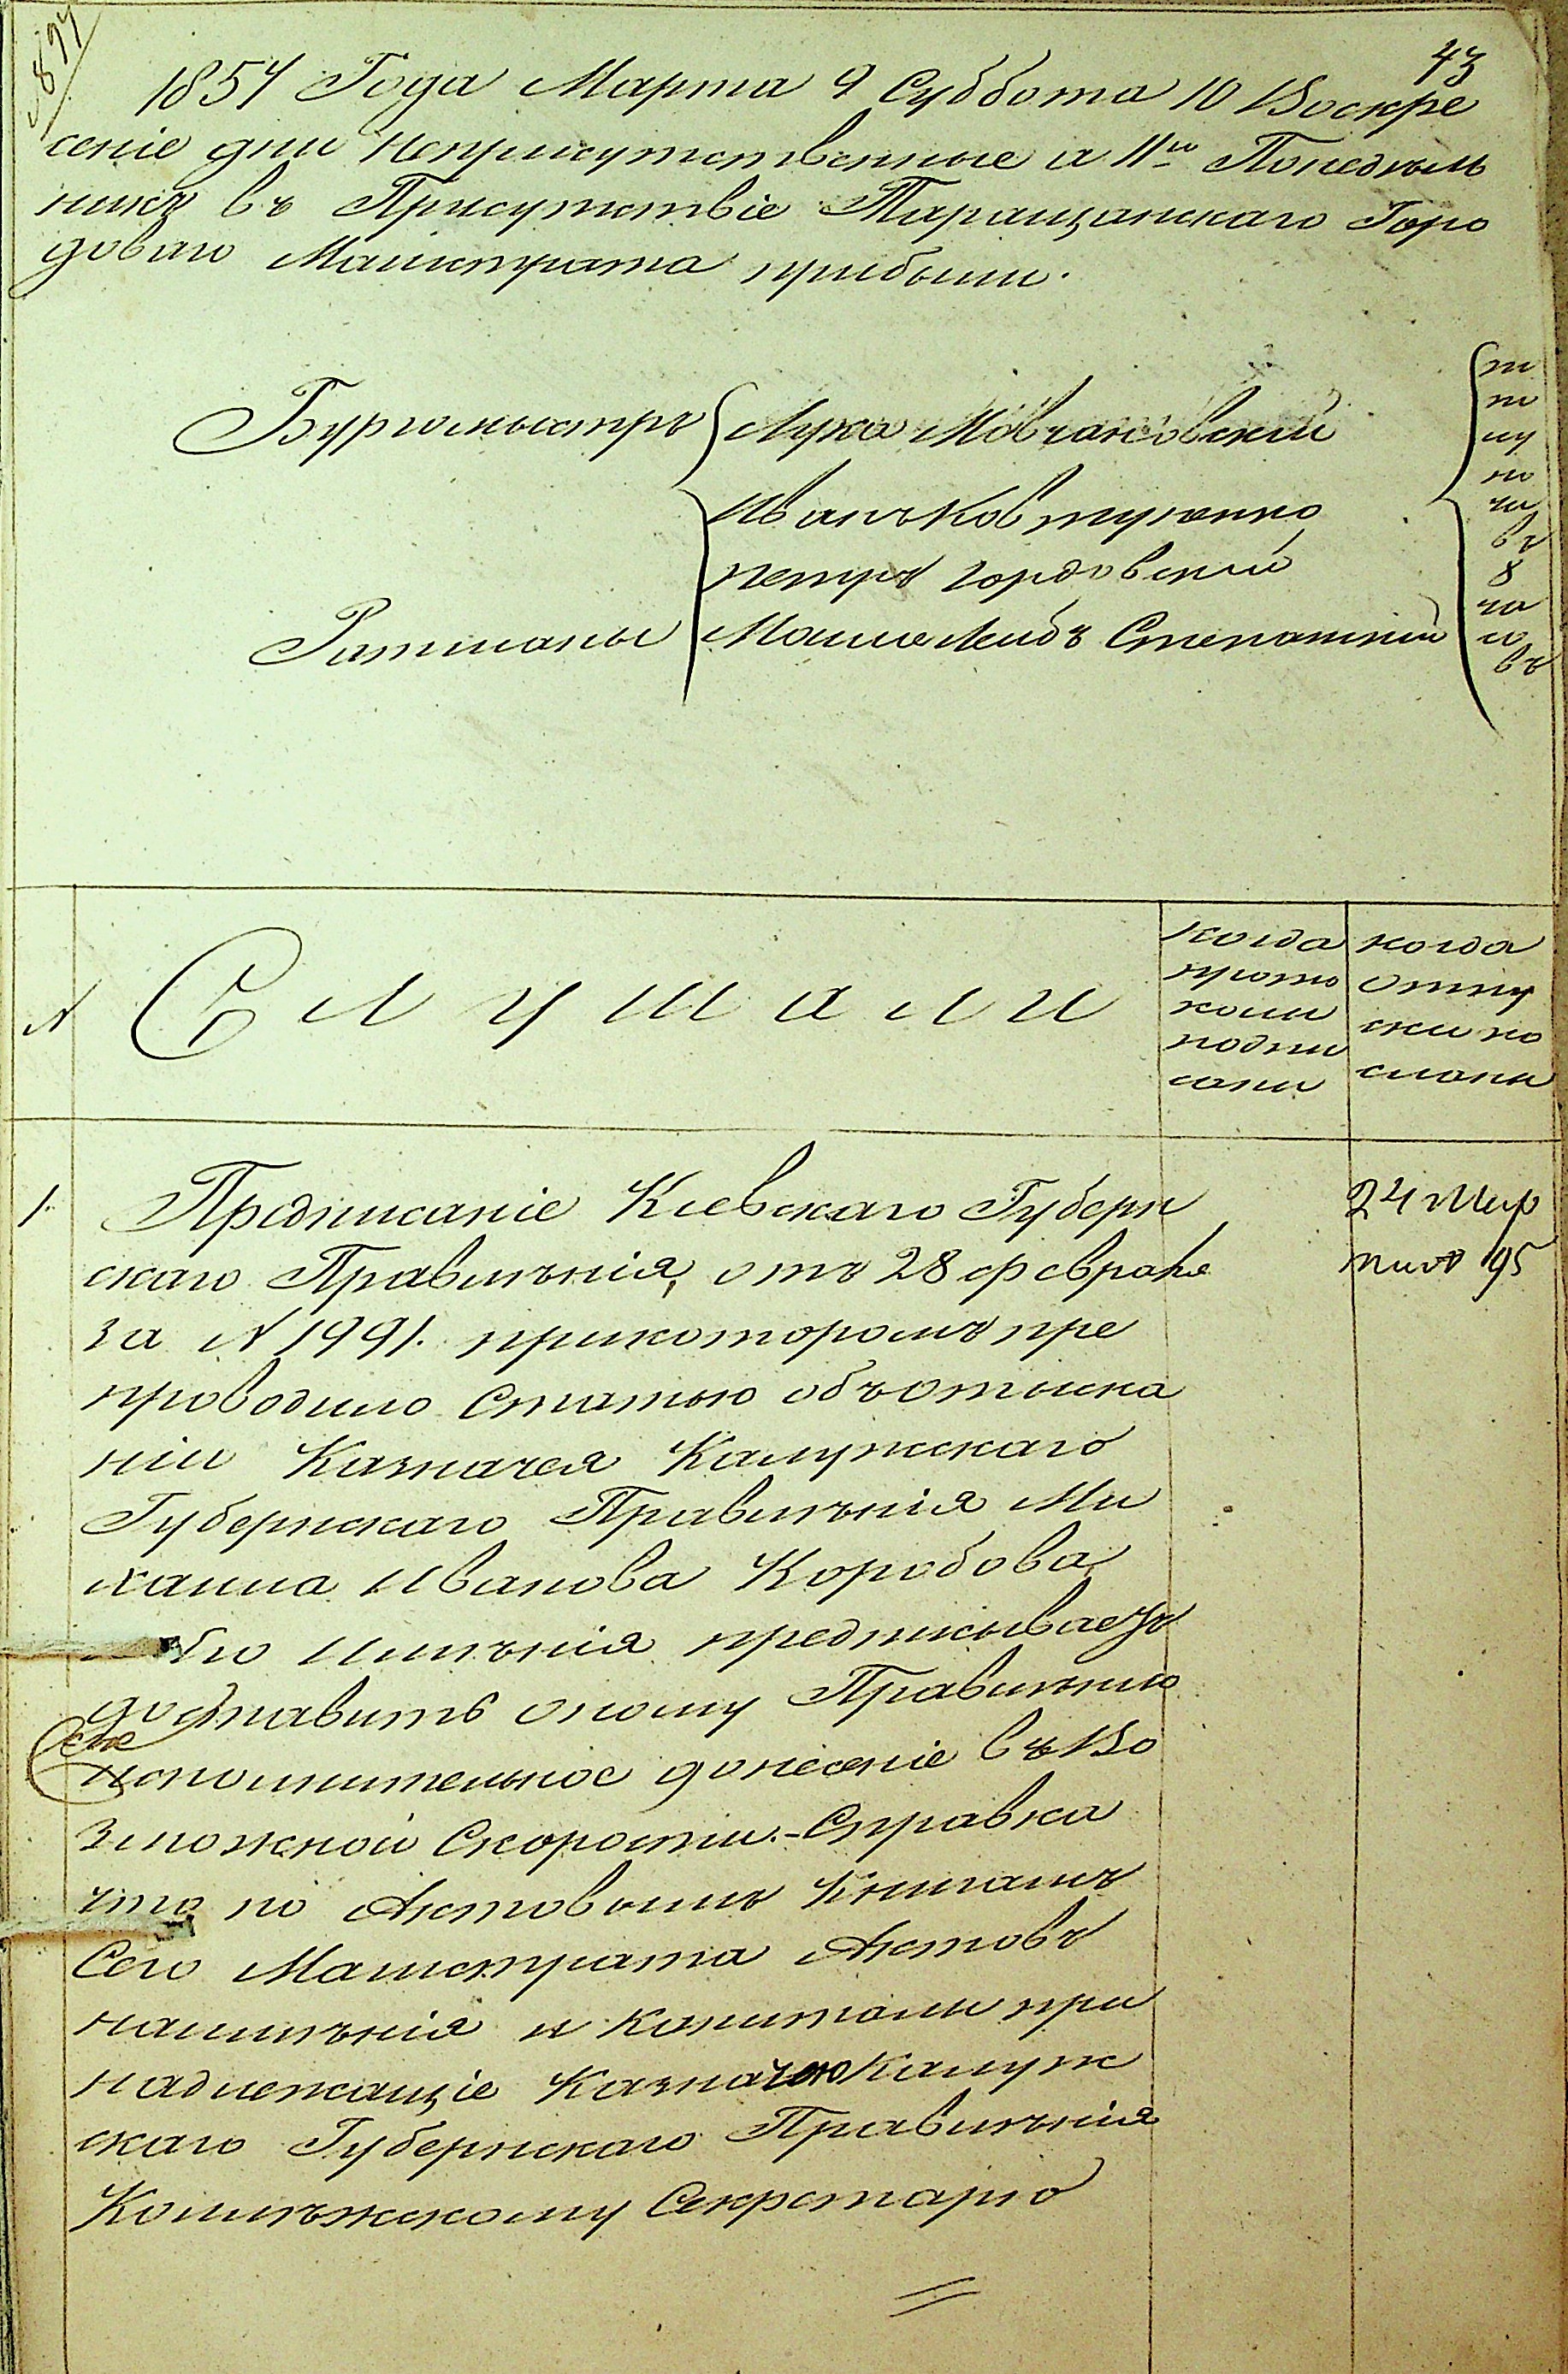 43
1857 Года Марта 9 Суббота 10 Воскре
сеніе дни неприсутственные а 11го Понедѣль
никъ въ Присутствіе Таращанскаго Горо
доваго Магистрата прибыли.
Бургомыстръ Лука Мовчановскій
Иванъ Ковтуненко
петръ гордовскій
Ратманы Мошко Лейбъ Степанскій
по
ча
въ
8
ча
со
въ
N Слушали
когда
прото
колы
подпи
саны
когда
отпу
ски по
сланы
1. Предписаніе Кіевскаго Губерн
скаго Правлѣнія, отъ 28 февраля
за N 1991. прикоторомъ пре
проводило Статью объотыска
ніи Казначея Калужскаго
Губернскаго Правлѣнія Ми
хаила Иванова Коробова
имѣнія предписываетъ
доставить оному Правлѣнию
исполнительное донесеніе въ Во
зможной Скорости.- Справка
что по Актовымъ Книгамъ
Сего Магистрата Актовъ
наимѣнія и Капиталы при
надлежащіе Казначею Калуж
скаго Губернскаго Правлѣнія
Коллѣжскому Секретарю
24 Мар
та 195